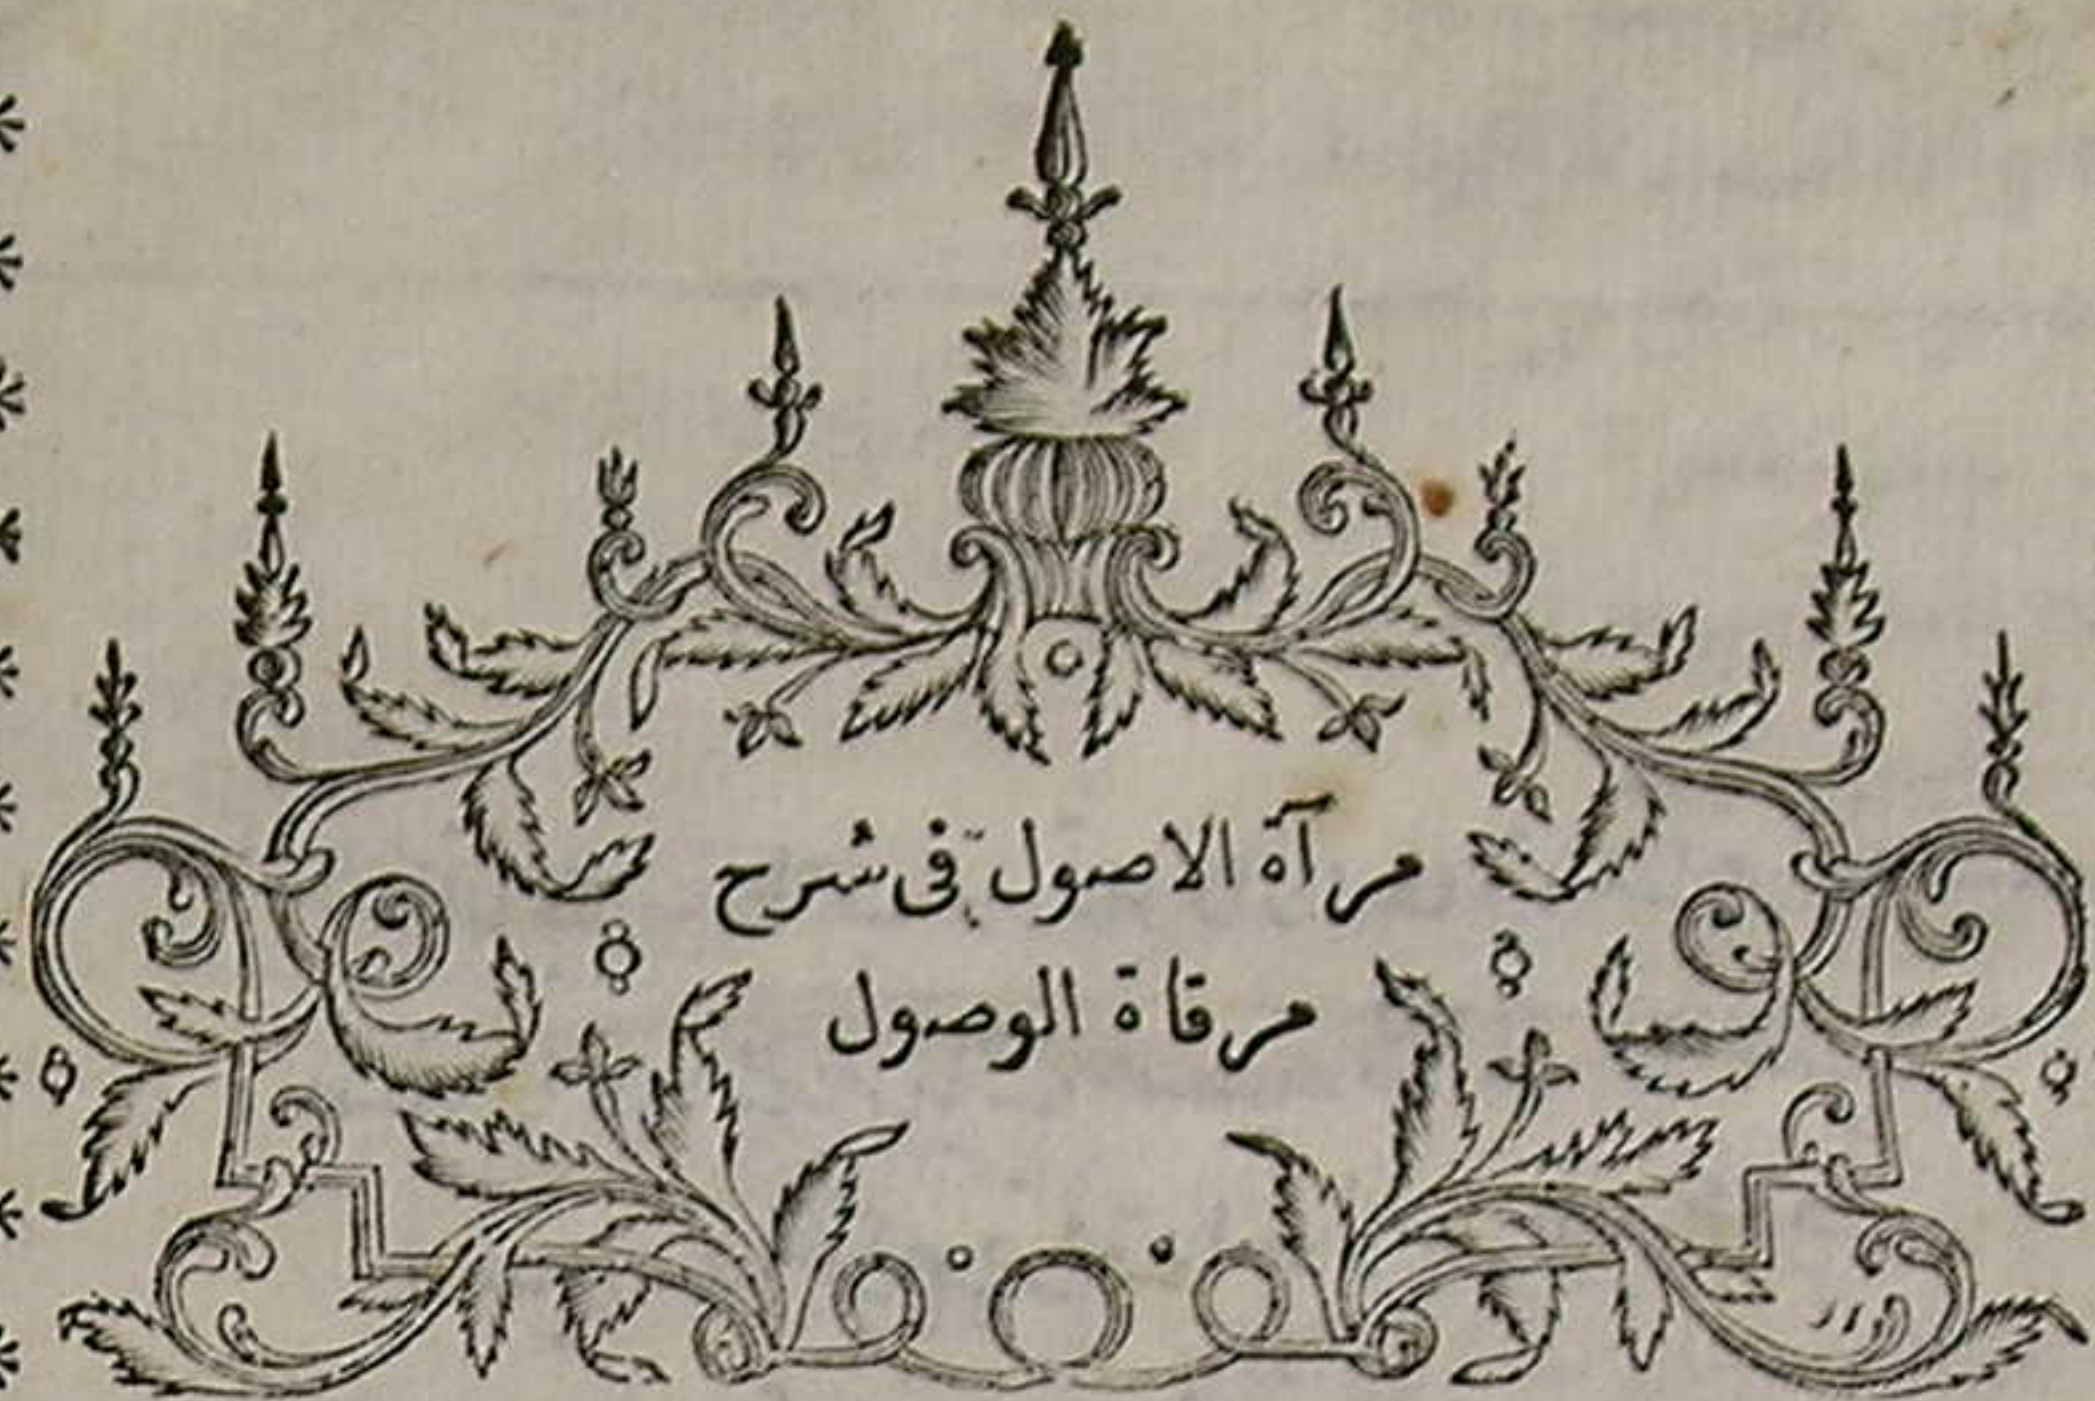 مرآة الاصول فى شرح
مرقاة الوصول